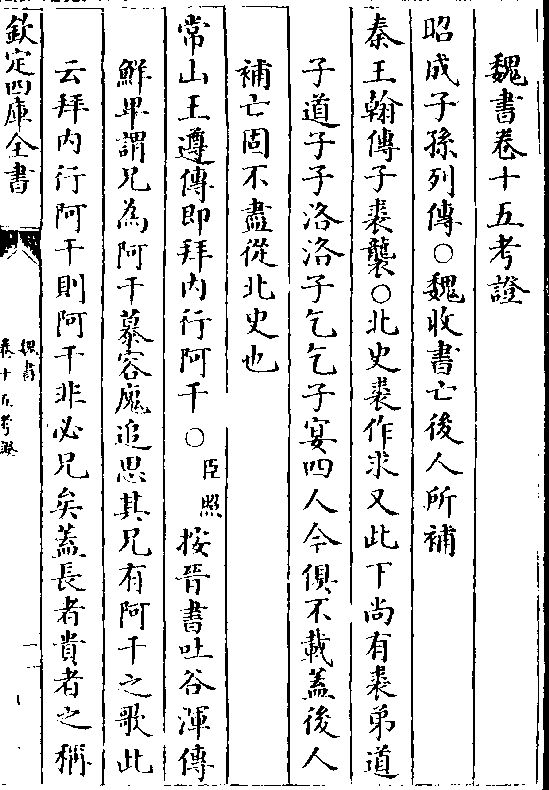 魏書卷十五考證
昭成子孫列傳○魏收書亡後人所補
秦王翰傳子裘襲○北史裘作求又此下尚有裘弟道
子道子子洛洛子乞乞子宴四人今俱不載蓋後人
補亡固不盡從北史也
常山王遵傳即拜内行阿干○臣照按晉書吐谷渾傳
鮮卑謂兄為阿干慕容廆追思其兄有阿干之歌此
云拜内行阿干則阿干非必兄矣蓋長者貴者之稱
欽定四庫全書
魏書
卷十五考證
一